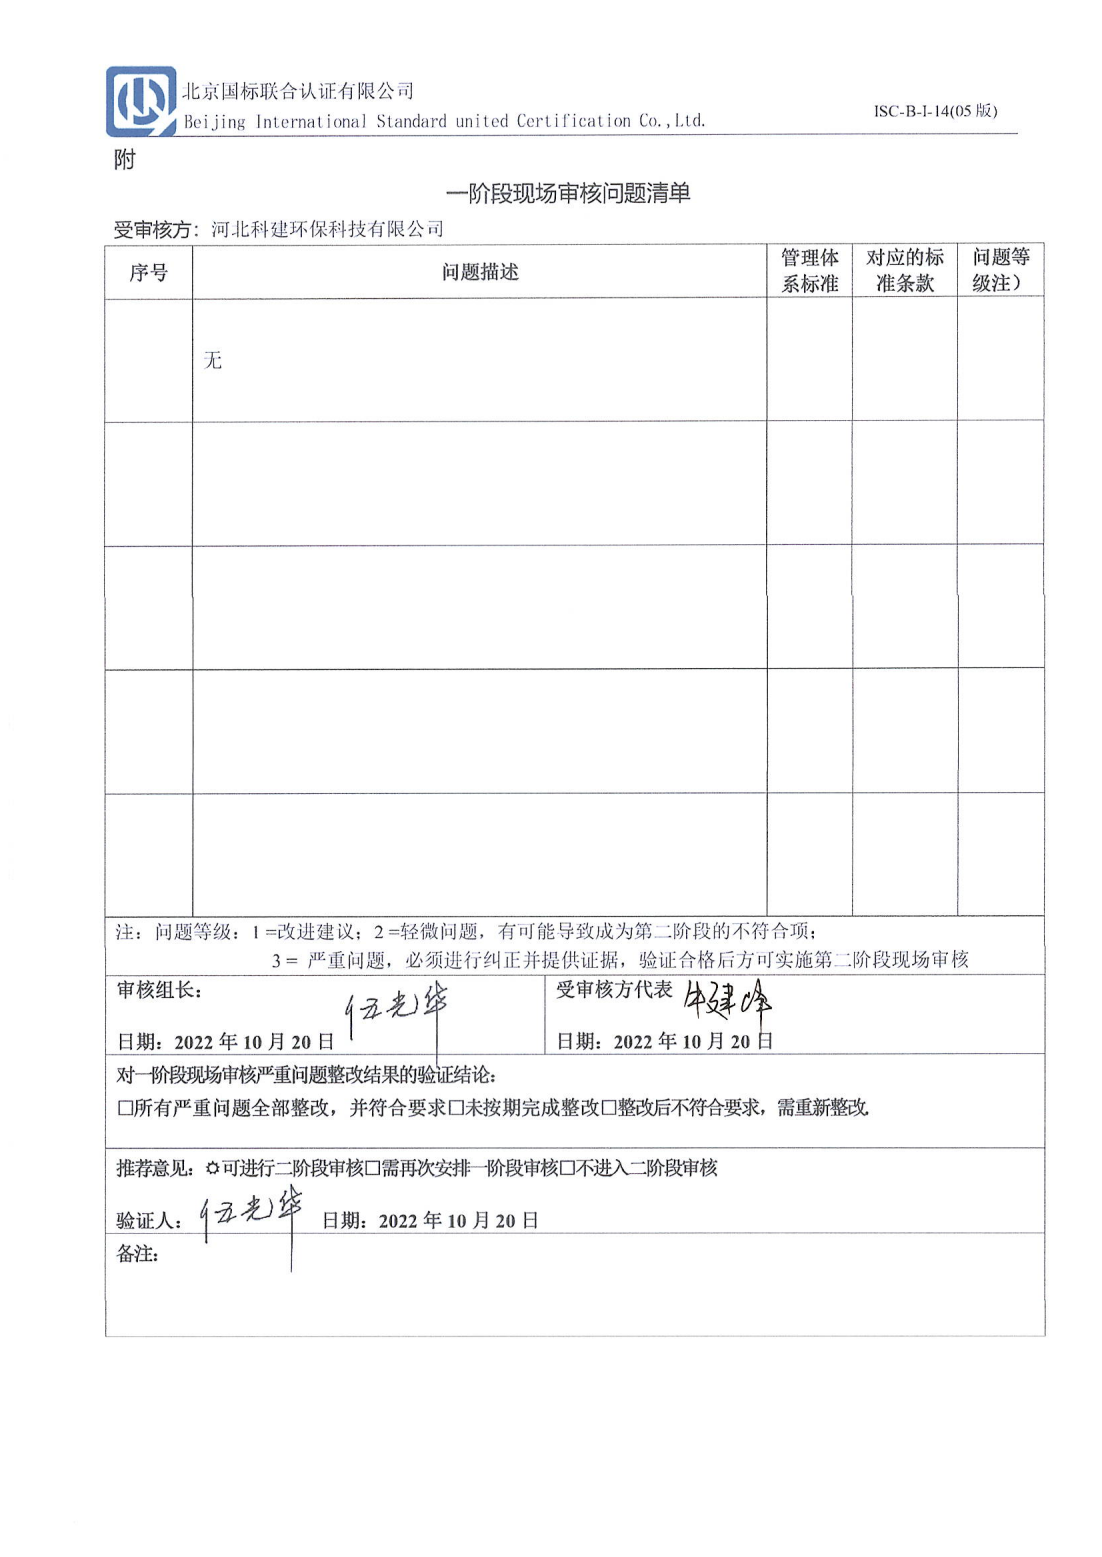 北京国标联合认证有限公司
Beijing International Standard united Certification Co.,Ltd.
ISC-B-I-14(05 版)
附
一阶段现场审核问题清单
受审核方：河北科建环保科技有限公司
序号 问题描述 管理体系标准 对应的标准条款 问题等级注）
无
注：问题等级：1 =改进建议；2 =轻微问题，有可能导致成为第二阶段的不符合项；
3 = 严重问题，必须进行纠正并提供证据，验证合格后方可实施第二阶段现场审核
审核组长：伍光华 受审核方代表 牛建峰
日期：2022 年 10 月 20 日 日期：2022 年 10 月 20 日
对一阶段现场审核严重问题整改结果的验证结论：
□所有严重问题全部整改，并符合要求□未按期完成整改□整改后不符合要求，需重新整改.
推荐意见：✡可进行二阶段审核□需再次安排一阶段审核□不进入二阶段审核
验证人：伍光华 日期：2022 年 10 月 20 日
备注：